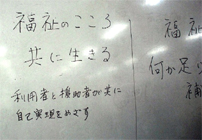 福祉のこころ
共に生きる
利用者と援助者が共に
自己実現をめざす
福祉
何か足り